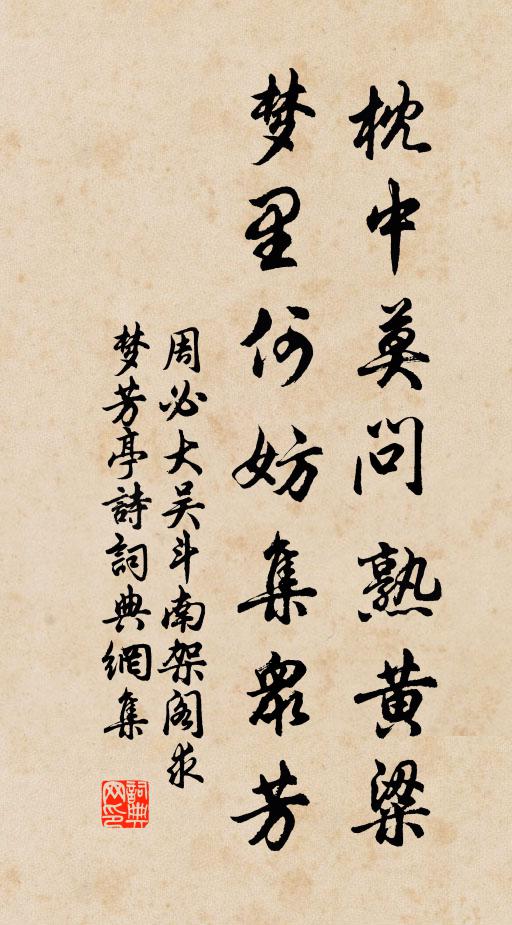 枕中莫问熟黄粱
梦里何妨集众芳
周必大吴斗南架阁求
梦芳亭詩詞典網集
詞典网印